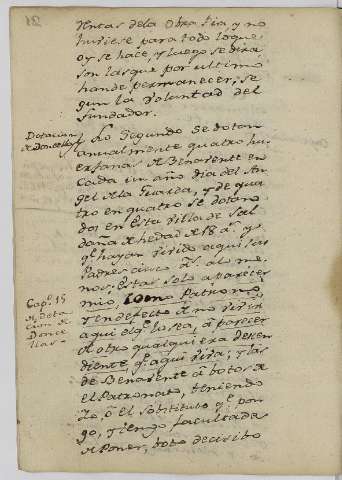 Rentas dela Obra Pia, y no
hubiese para todo loque
oy se hace, y luego se dira
son las que por ultimo
han de permanecer, se
gun la Voluntad del
fundador.
Dotacion
de Doncellas
Lo Segundo Se dotan
anualmente quatro hu
erfanas de Benavente en
Cada un año dia del An
gel de la Guarda, y de qua
tro en quatro se dotan
dos en esta Villa de Sal
daña de hedad de 18 a.s y
q.e hayan vivido aqui sus
Padres cinco a.s al me
nos. Estas solo a parecer
mio, Como Patrono
y en defecto de no vivir
aqui el q.e lo sea, a parecer
de otro qualquiera decen
diente q.e aqui viva; y las
de Benavente a botos de
el Patronato, teniendo
Yo, ó el sostituto q.e pon
go, y tengo facultades
de Poner, boto decisibo
Cap.o 15
de dota
cion de
Donce
llas